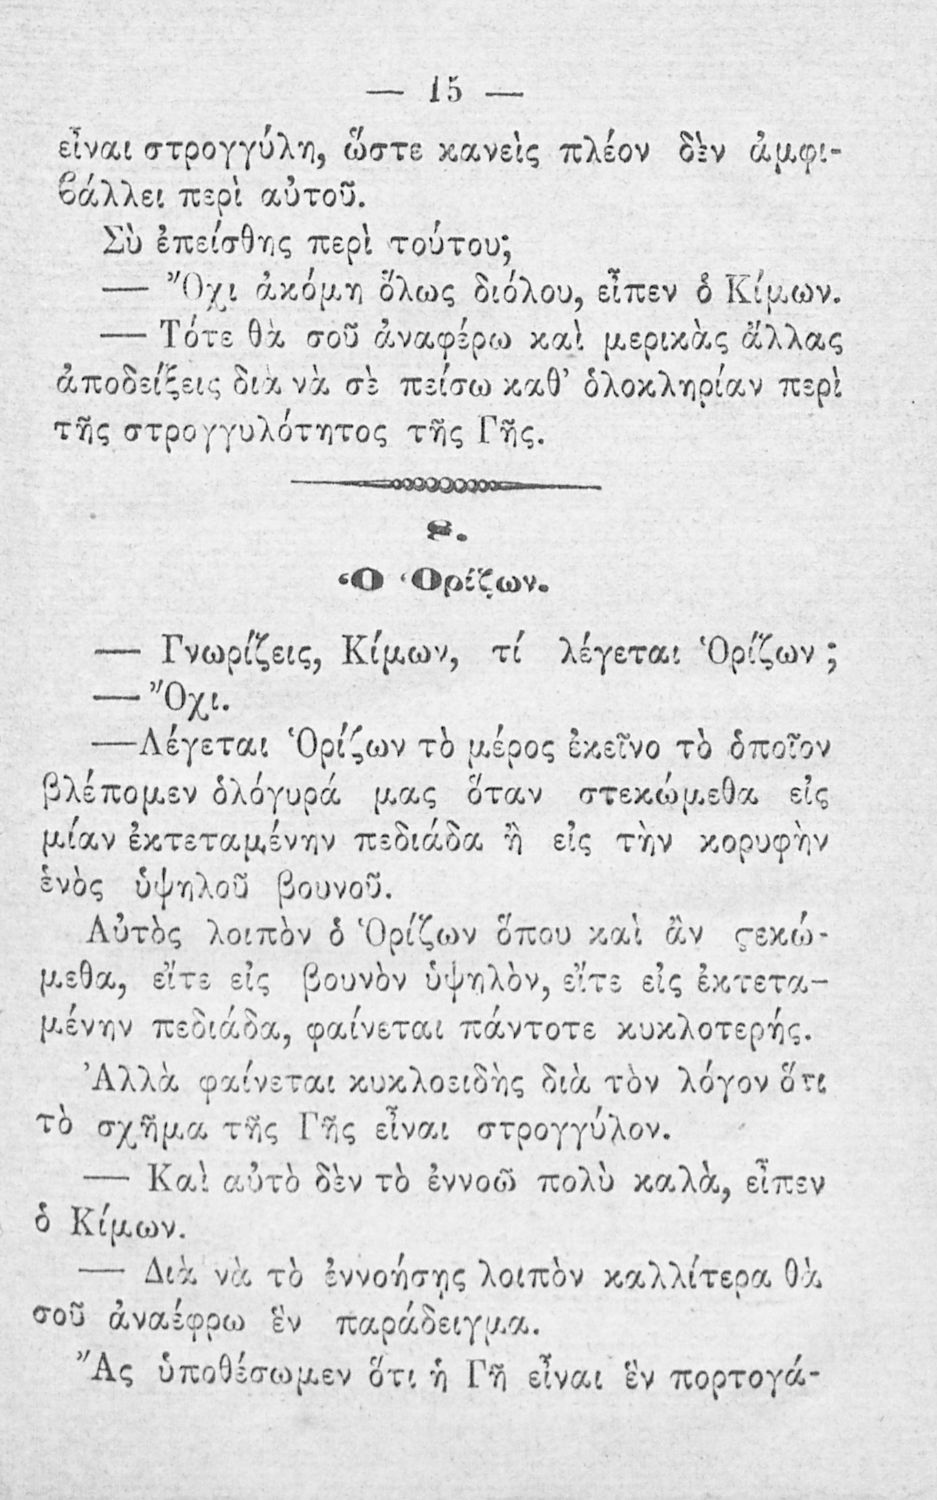 — 15 —
εἶναι στρογγύλη, ὥστε κανεὶς πλέον δὲν ἀμφι-
βάλλει περὶ αὐτοῦ.
Σὺ ἐπείσθης περὶ τούτου;
— Ὄχι ἀκόμη ὅλως διόλου, εἶπεν ὁ Κίμων.
— Τότε θὰ σοῦ ἀναφέρω καὶ μερικὰς ἄλλας
ἀποδείξεις διὰ νὰ σὲ πείσω καθ’ ὁλοκληρίαν περὶ
τῆς στρογγυλότητος τῆς Γῆς.
8.
Ὁ Ὁρίζων.
— Γνωρίζεις, Κίμων, τί λέγεται Ὁρίζων ;
— Ὄχι.
—Λέγεται Ὁρίζων τὸ μέρος ἐκεῖνο τὸ ὁποῖον
βλέπομεν ὁλόγυρά μας ὅταν στεκώμεθα εἰς
μίαν ἐκτεταμένην πεδιάδα ἢ εἰς τὴν κορυφὴν
ἑνὸς ὑψηλοῦ βουνοῦ.
Αὐτὸς λοιπὸν ὁ Ὁρίζων ὅπου καὶ ἂν ϛεκώ-
μεθα, εἴτε εἰς βουνὸν ὑψηλὸν, εἴτε εἰς ἐκτετα-
μένην πεδιάδα, φαίνεται πάντοτε κυκλοτερής.
Ἀλλὰ φαίνεται κυκλοειδὴς διὰ τὸν λόγον ὅτι
τὸ σχῆμα τῆς Γῆς εἶναι στρογγύλον.
— Καὶ αὐτὸ δὲν τὸ ἐννοῶ πολὺ καλὰ, εἶπεν
ὁ Κίμων.
— Διὰ νὰ τὸ ἐννοήσῃς λοιπὸν καλλίτερα θὰ
σοῦ ἀναέφρω ἓν παράδειγμα.
Ἂς ὑποθέσωμεν ὅτι ἡ Γῆ εἶναι ἓν πορτογά-